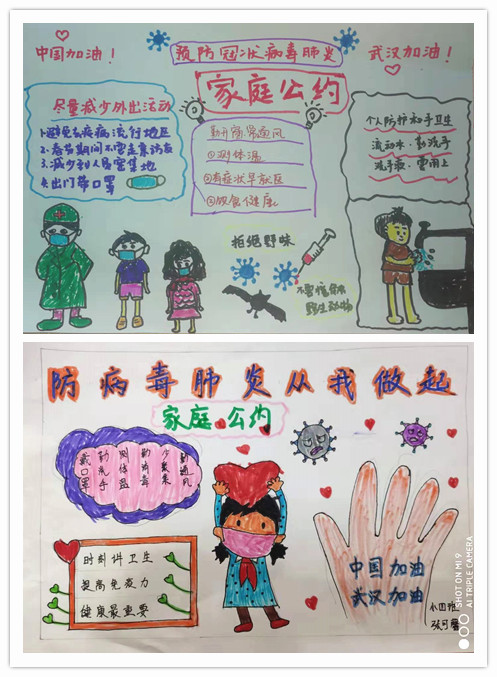 中国加油！
预防冠状病毒肺炎
武汉加油！
家庭公约
尽量减少外出活动
1.避免去疾病流行地区
2.春节期间不要走亲访友
3.减少到人员密集地
4.出门带口罩
勤开窗常通风
②测体温
③有症状早就医
④饮食健康
个人防护和手卫生
流动水、勤洗手
洗手液、要用上
拒绝野味
野生动物
防病毒肺炎从我做起
家庭公约
戴口罩
勤洗手
测体温
勤消毒
少聚集
勤通风
时刻讲卫生
提高免疫力
健康最重要
中国加油
武汉加油
SHOT ON MI 9
AI TRIPLE CAMERA